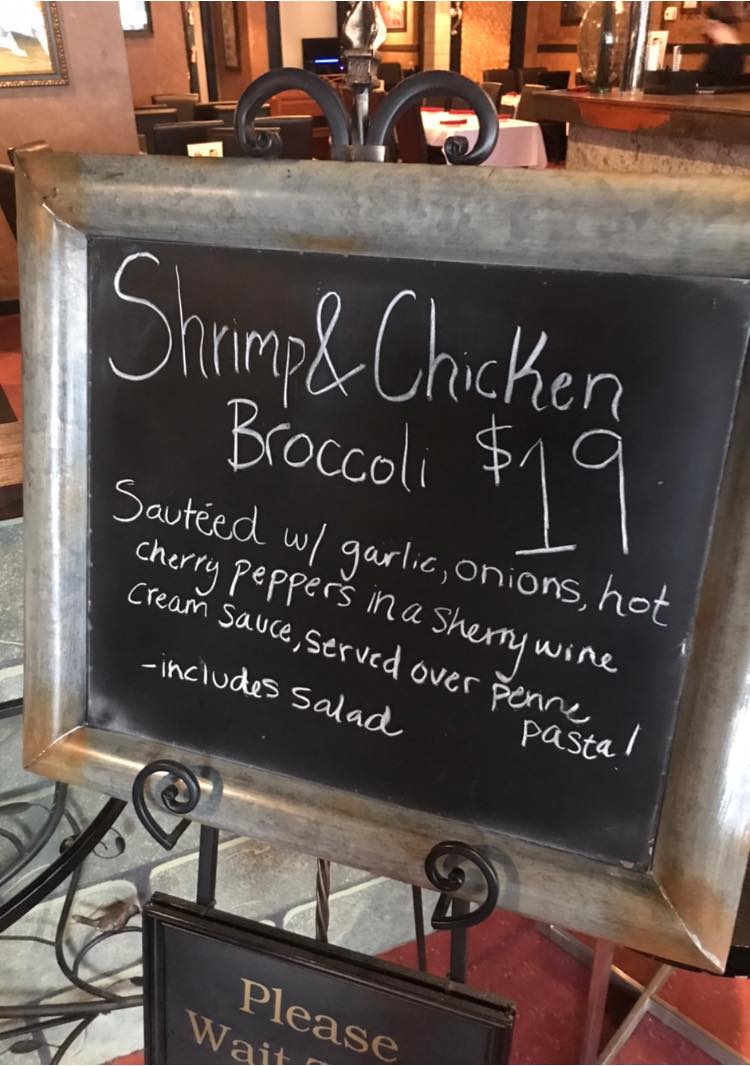 Shrimp & Chicken
Broccoli $19
Sautéed w/ garlic, onions, hot
cherry peppers in a sherry wine
cream sauce, served over penne
pasta!
-includes salad
Please
Wait